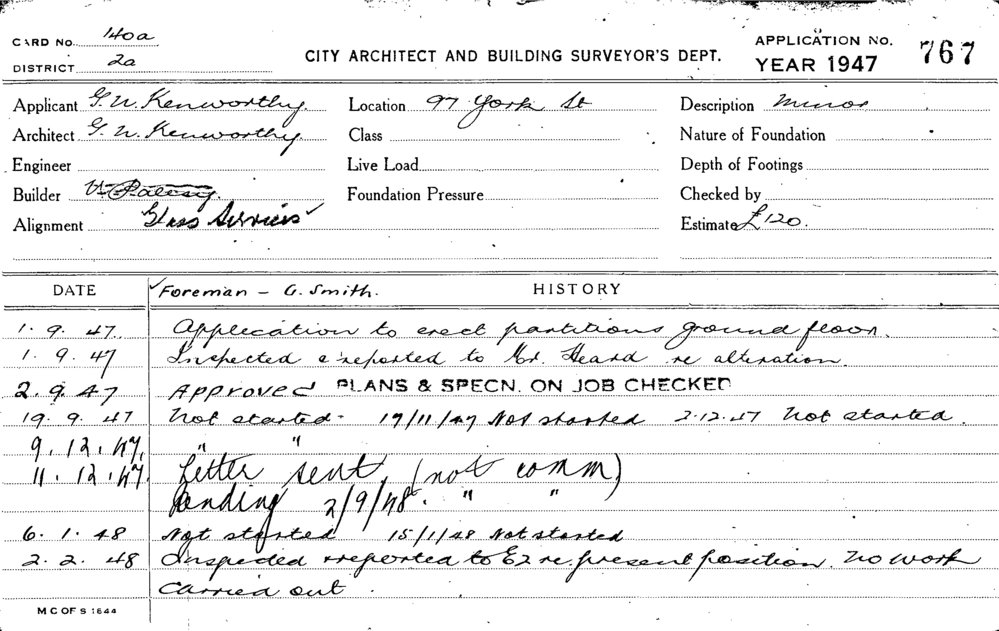 CARD NO. 140a
DISTRICT 2a
CITY ARCHITECT AND BUILDING SURVEYOR'S DEPT.
APPLICATION NO. 767
YEAR 1947
Applicant G. W. Kenworthy Location 97 York St Description Minor
Architect G. W. Kenworthy Class Nature of Foundation
Engineer Live Load Depth of Footings
Builder Foundation Pressure Checked by
Alignment Glass Services Estimate £120.
DATE Foreman - G. Smith. HISTORY
1. 9. 47. Application to erect partitions ground floor.
1. 9. 47 Inspected & reported to Mr. Heard re alteration
2. 9. 47 Approved PLANS & SPECN. ON JOB CHECKED
19. 9. 47 Not started - 17/11/47 Not started 2.12.47 Not started.
9. 12. 47. " "
11. 12. 47. Letter sent, (not comm)
Pending 2/9/48. " "
6. 1. 48 Not started 15/1/48 Not started
2. 2. 48 Inspected & reported to E2 re. present position. No work
carried out.
M C OF S 1644